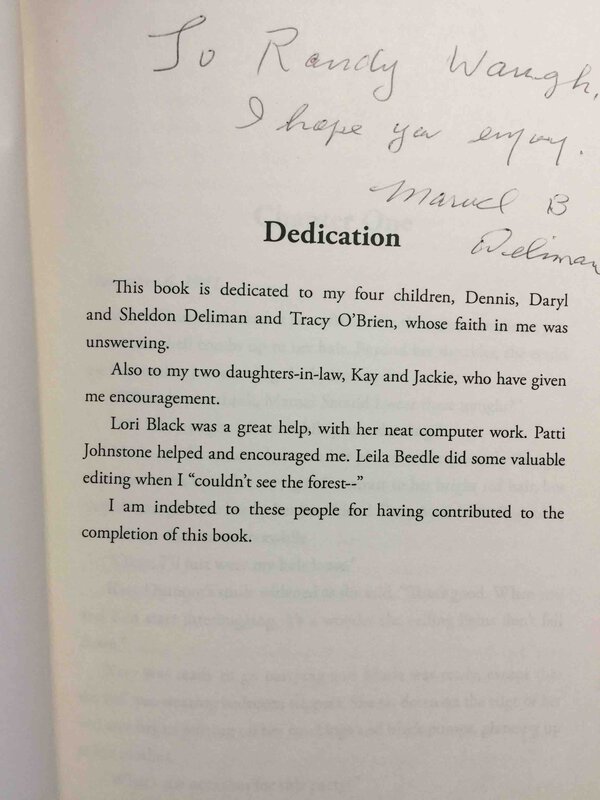 To Randy Waugh,
I hope you enjoy.
Marvel B
Deliman
Dedication
This book is dedicated to my four children, Dennis, Daryl
and Sheldon Deliman and Tracy O’Brien, whose faith in me was
unswerving.
Also to my two daughters-in-law, Kay and Jackie, who have given
me encouragement.
Lori Black was a great help, with her neat computer work. Patti
Johnstone helped and encouraged me. Leila Beedle did some valuable
editing when I “couldn’t see the forest--”
I am indebted to these people for having contributed to the
completion of this book.